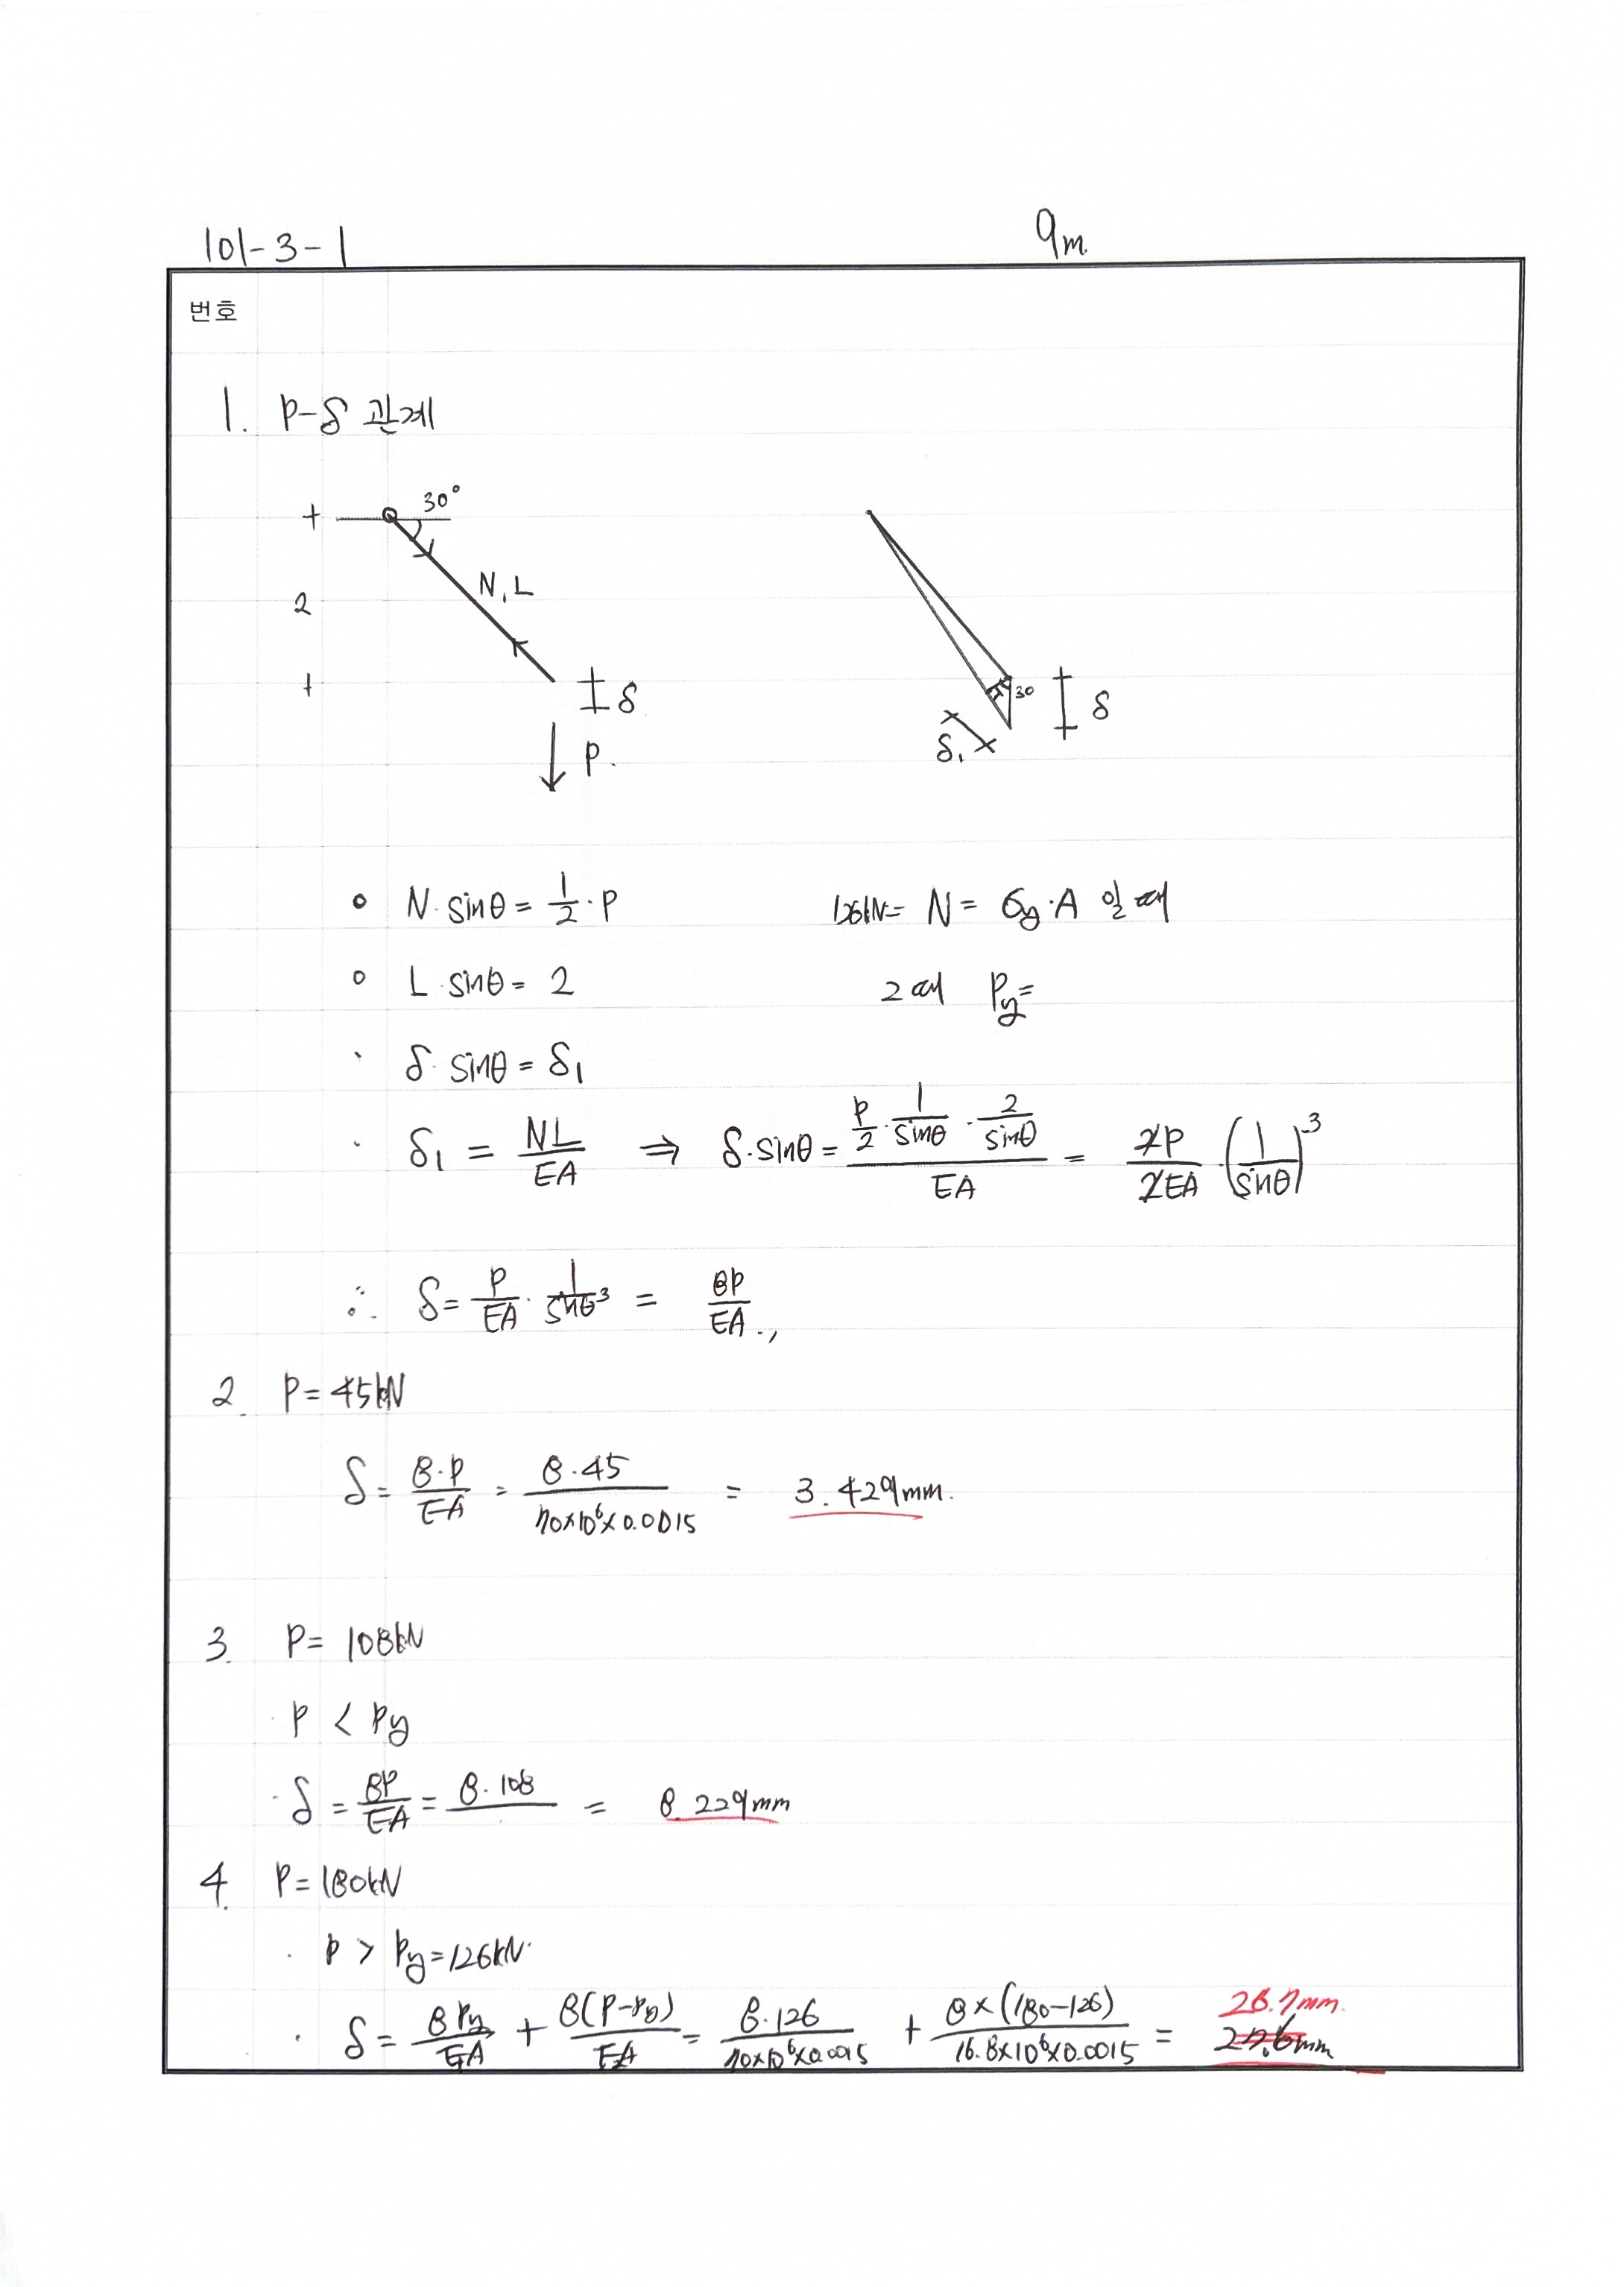 101-3-1
9m.
번호
1. P-δ 관계
30°
N, L
2
δ
P.
30
δ
δ₁
∘ N·sinθ = 1/2·P
126kN = N = σy·A 일때
∘ L·sinθ = 2
2 때 Py=
· δ·sinθ = δ₁
· δ₁ = NL/EA ⇒ δ·sinθ = (P/2·1/sinθ·2/sinθ)/EA = 2P/2EA·(1/sinθ)³
∴ δ = P/EA·1/sinθ³ = 8P/EA.,
2. P = 45kN
δ = 8·P/EA = 8·45/70×10⁶×0.0015 = 3.429mm.
3. P = 108kN
· P < Py
· δ = 8P/EA = 8·108/ = 8.229mm
4. P = 180kN
· P > Py = 126kN.
· δ = 8Py/EA + 8(P-Py)/EA = 8·126/70×10⁶×0.0015 + 8×(180-126)/16.8×10⁶×0.0015 = 26.7mm.